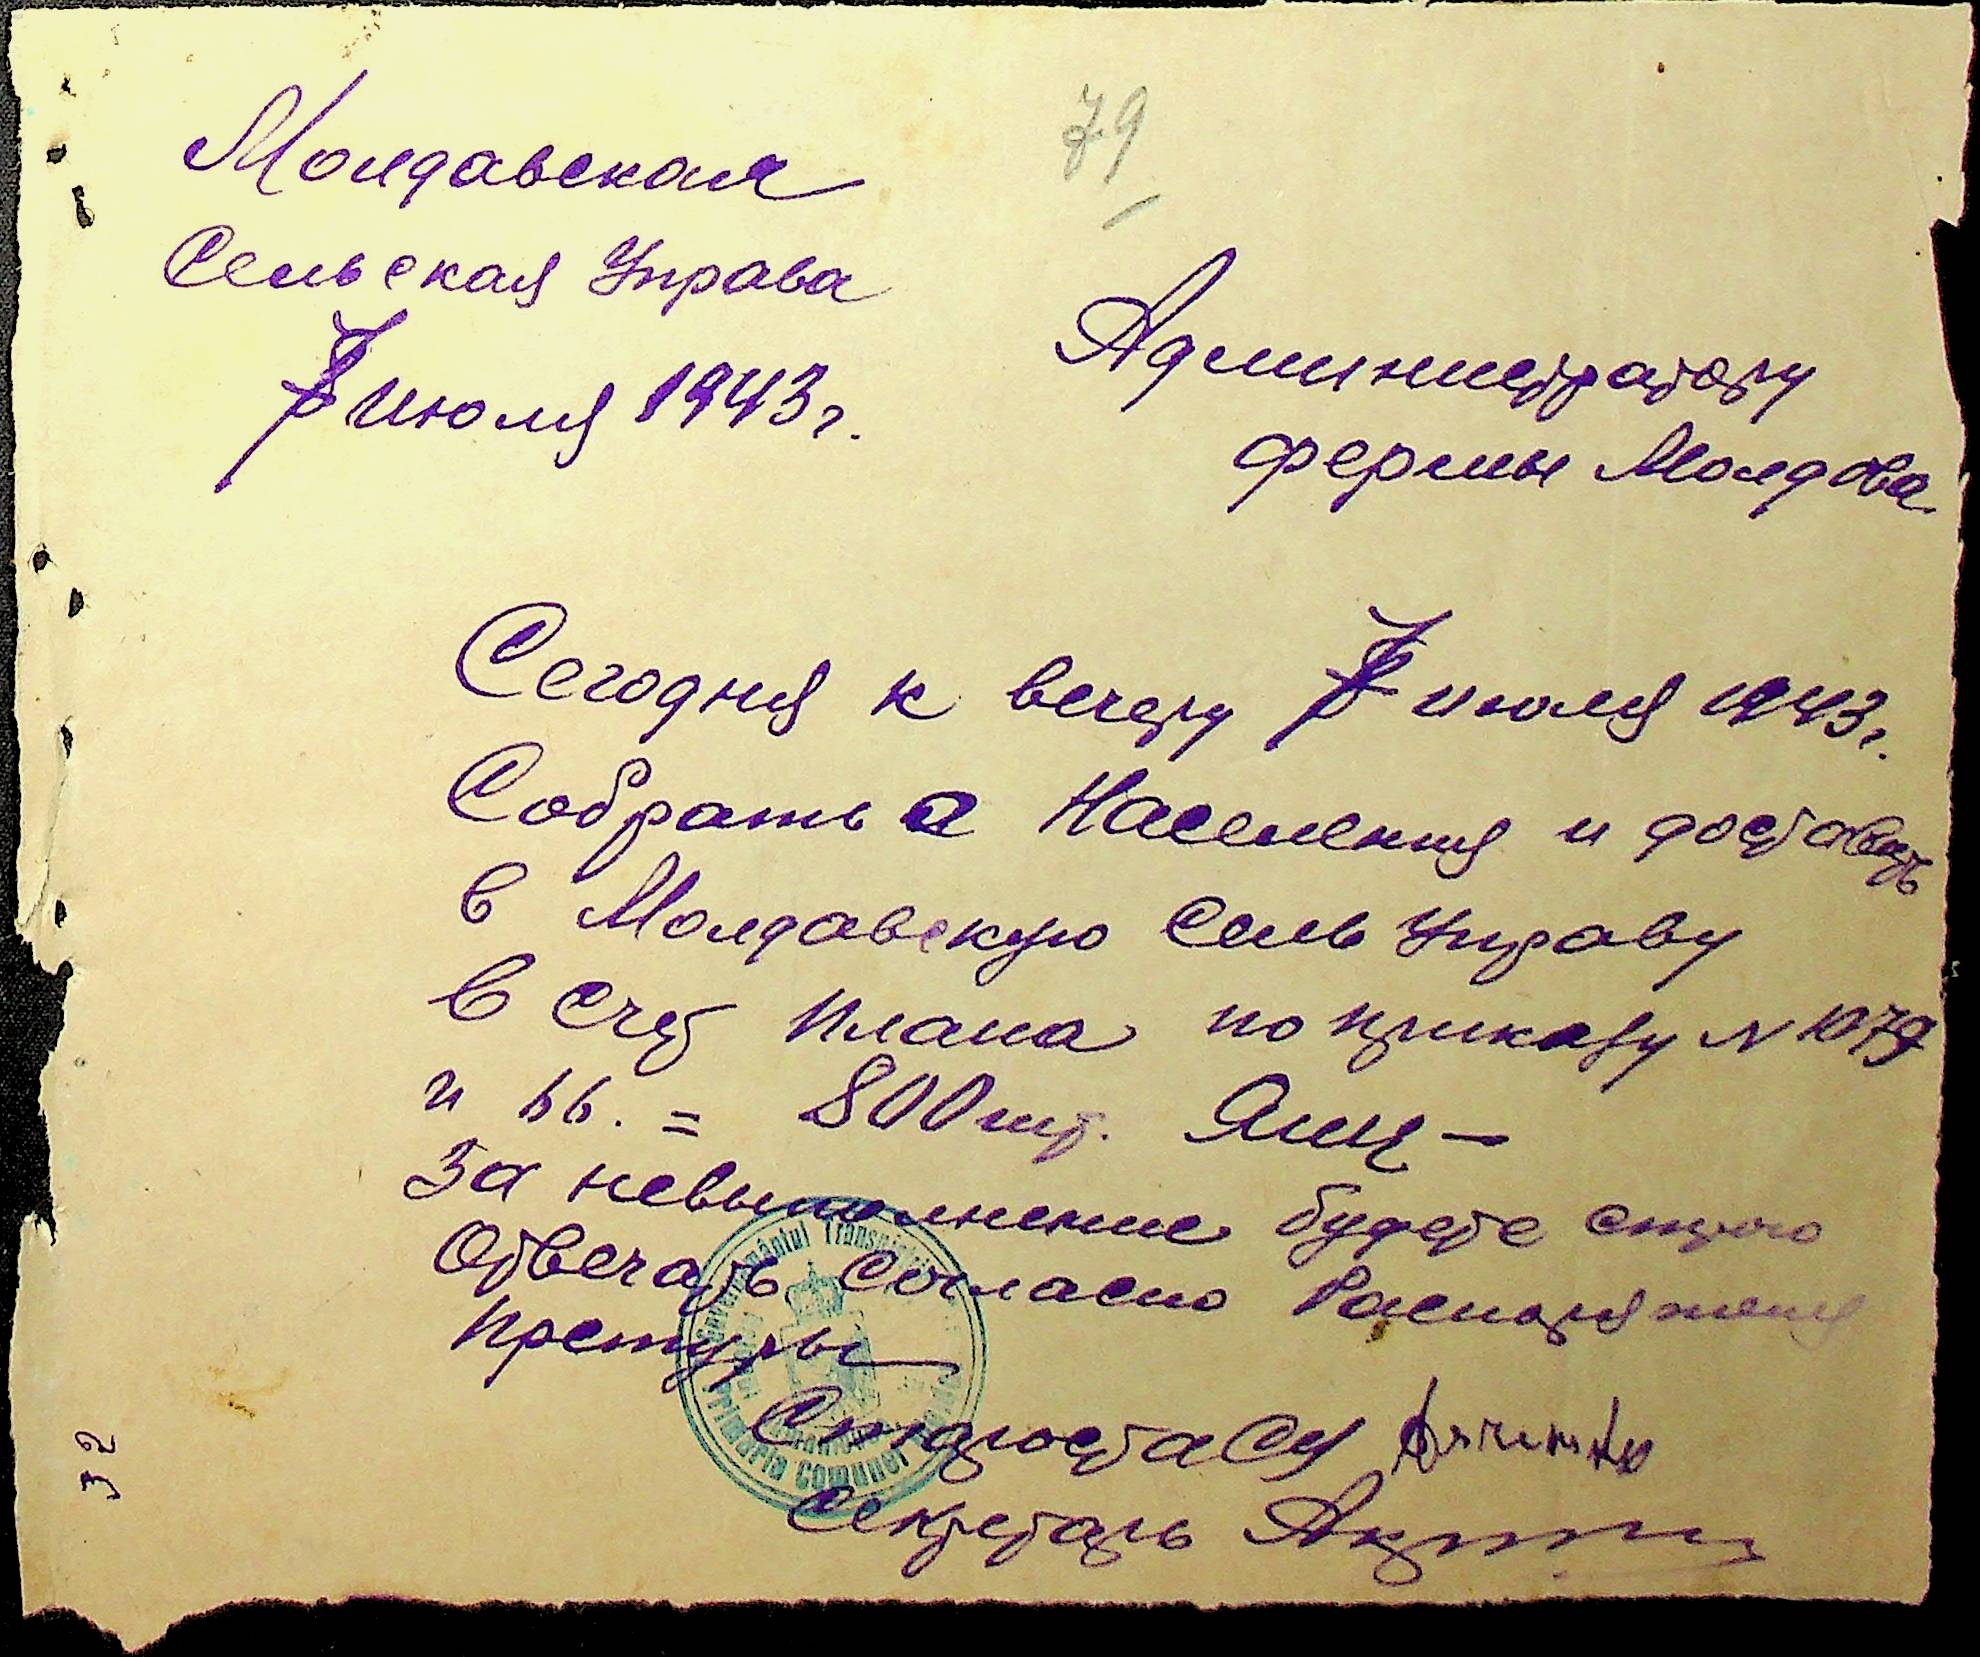 79
Молдавская
Сельская Управа
7 июля 1943 г.
Администратору
фермы Молдова
Сегодня к вечеру 7 июля 1943 г.
Собрать с Населения и доставить
в Молдавскую Сель Управу
в счет плана по приказу N 1079
и 66. = 800 шт. Яиц —
За невыполнение будете строго
Отвечать Согласно Распоряжения
Претуры
Староста Сел
Секретарь
32
Guvernământul Transnistriei
Primăria Comunei